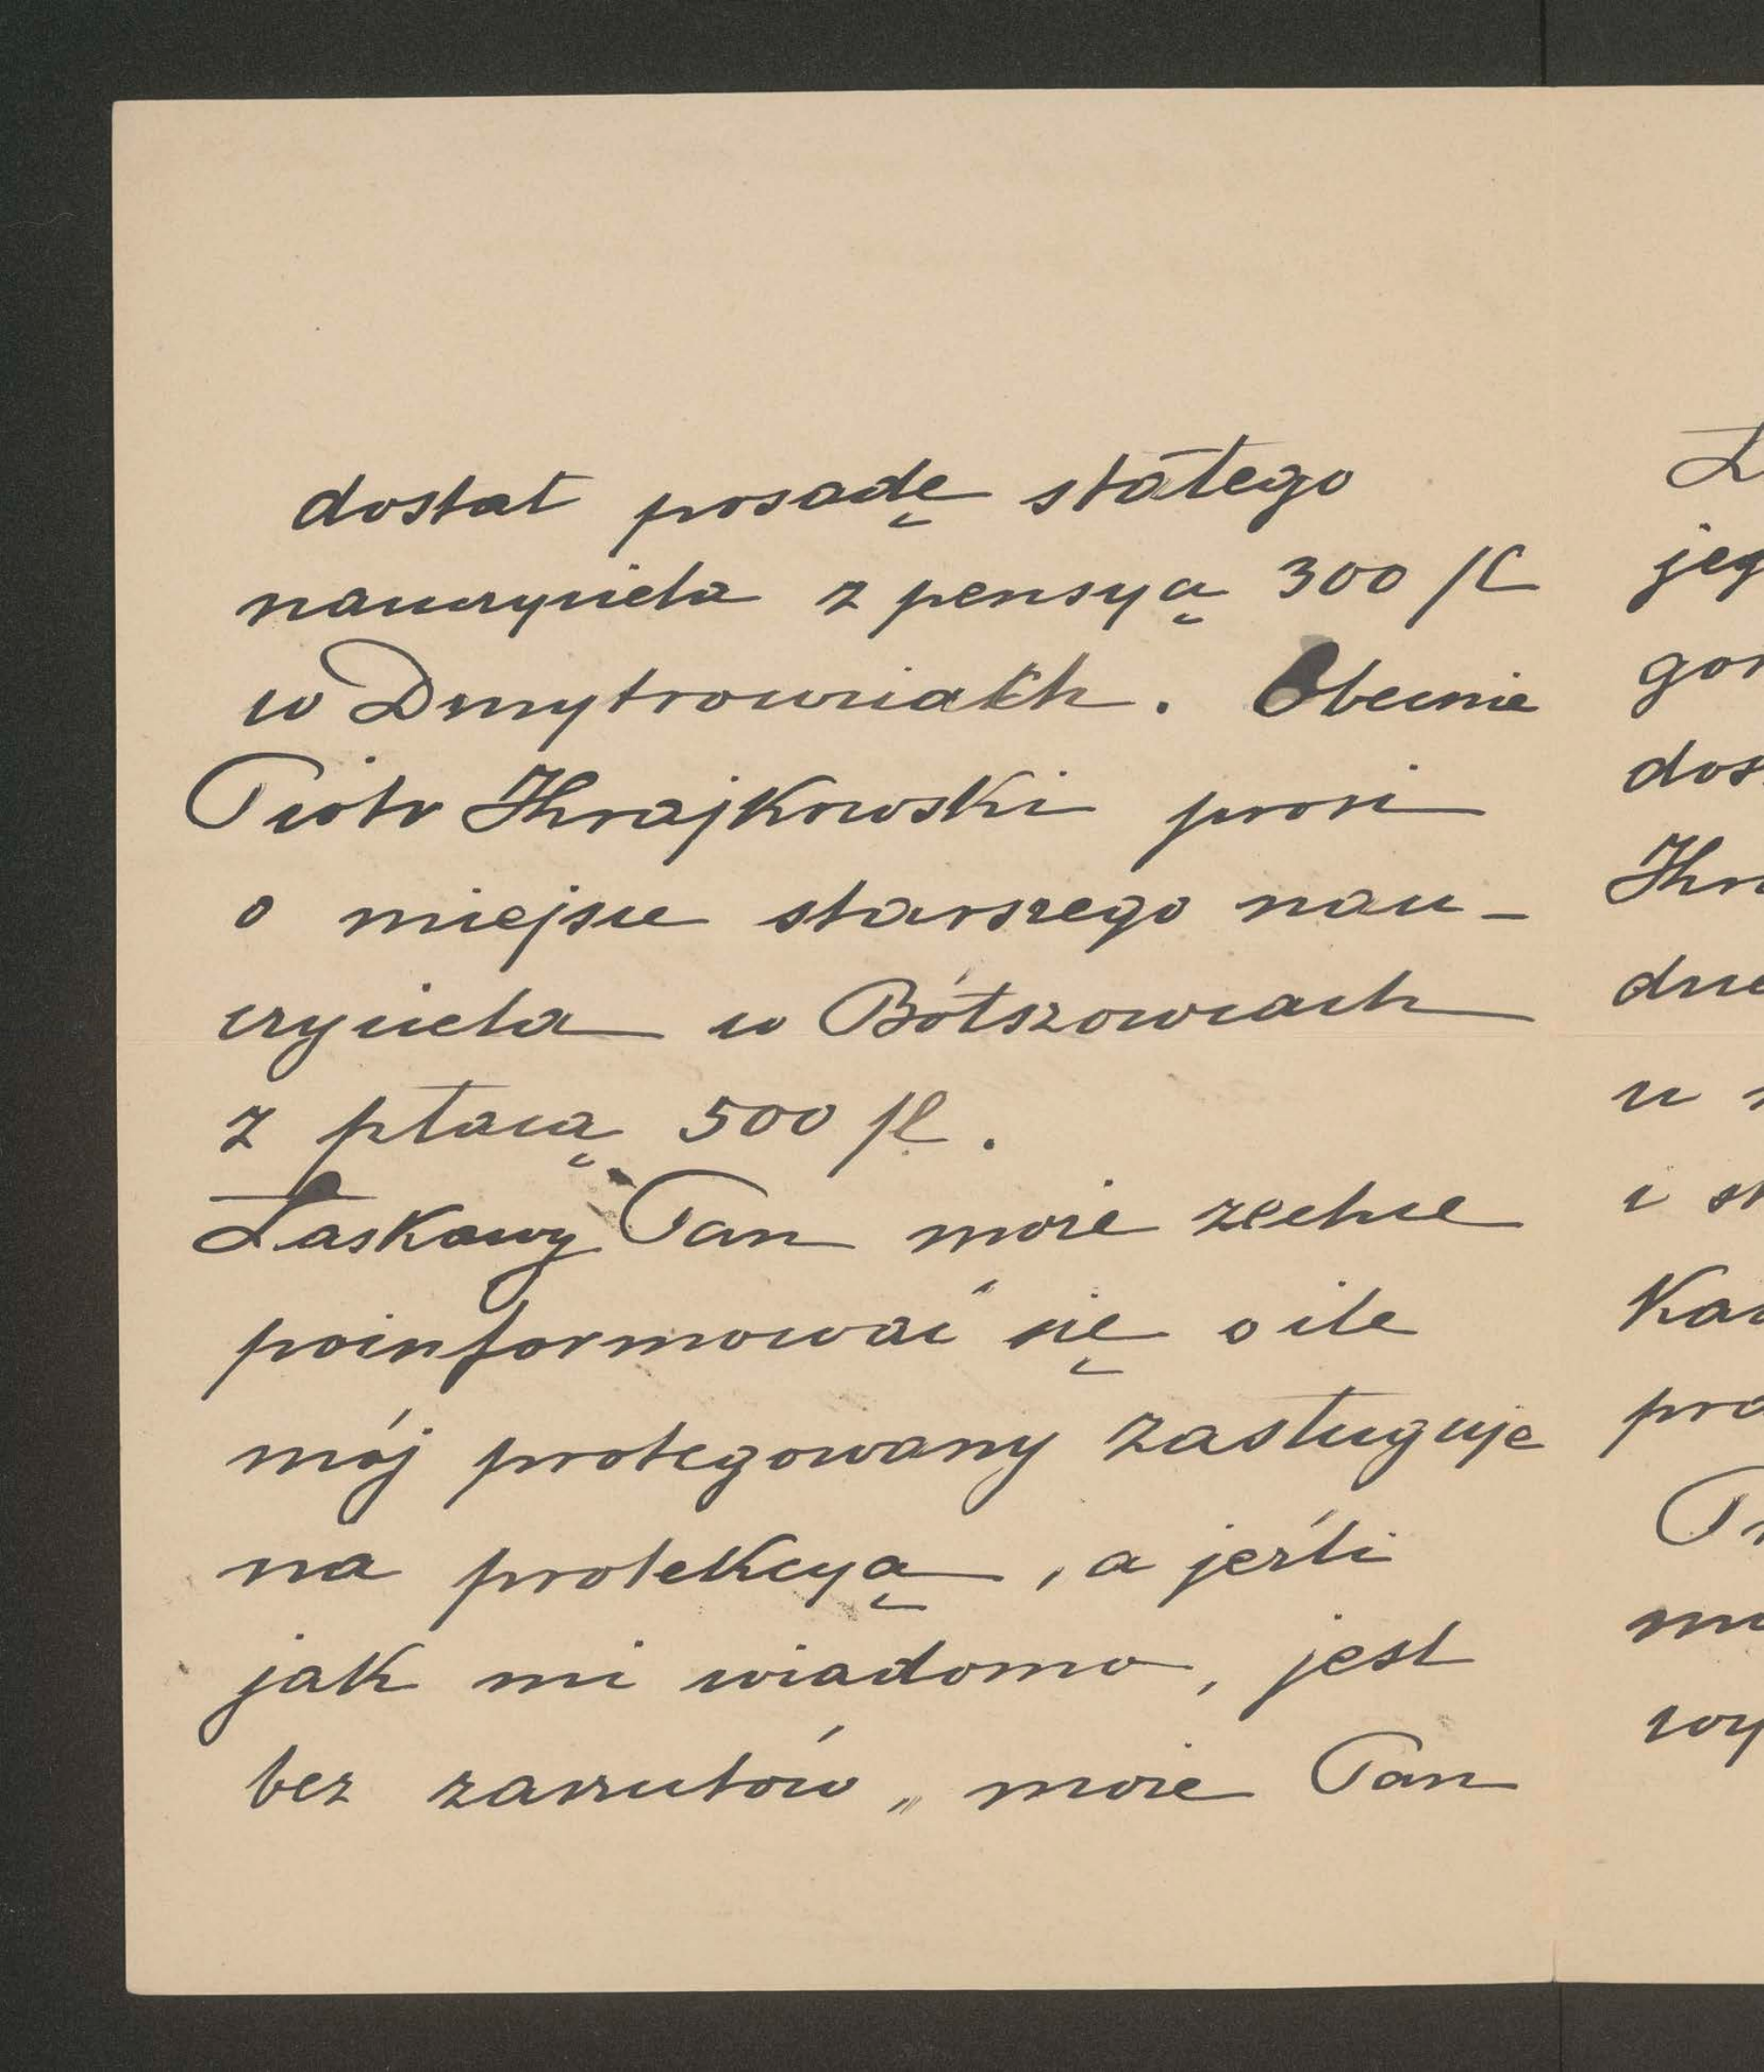 dostał posadę stałego
nauczyciela z pensyą 300 fl
w Dmytrowicach. Obecnie
Piotr Hrajkowski prosi
o miejsce starszego nau-
czyciela w Bółszowcach
z płacą 500 fl.
Łaskawy Pan może zechce
poinformować się o ile
mój protegowany zasługuje
na protekcyą, a jeśli
jak mi wiadomo, jest
bez zarzutów „ może Pan